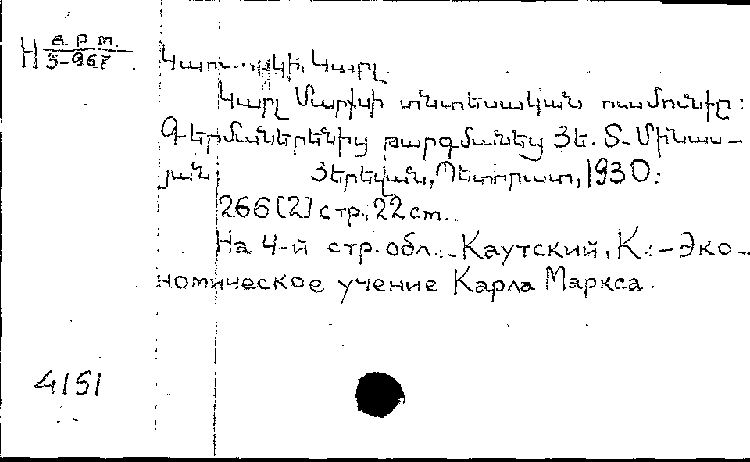 Н арт.
5-967
Կաուցկի, Կարլ
Կարլ Մարքսի տնտեսական ուսմունքը:
Գերմաներենից թարգմանեց Յե. Տ. Մինաս-
յան Յերեվան, Պետհրատ, 1930:
266 [2] стр., 22 cm.
На 4-й стр. обл.: Каутский, К.: – Эко-
номическое учение Карла Маркса.
4151